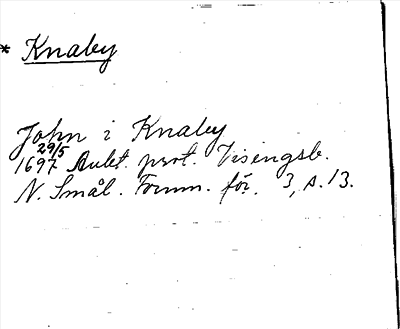 * Knaby
John i Knaby
29/5
1697 Aukt. prot. Visingsb.
N. Smål. Fornm. för. 3, s. 13.